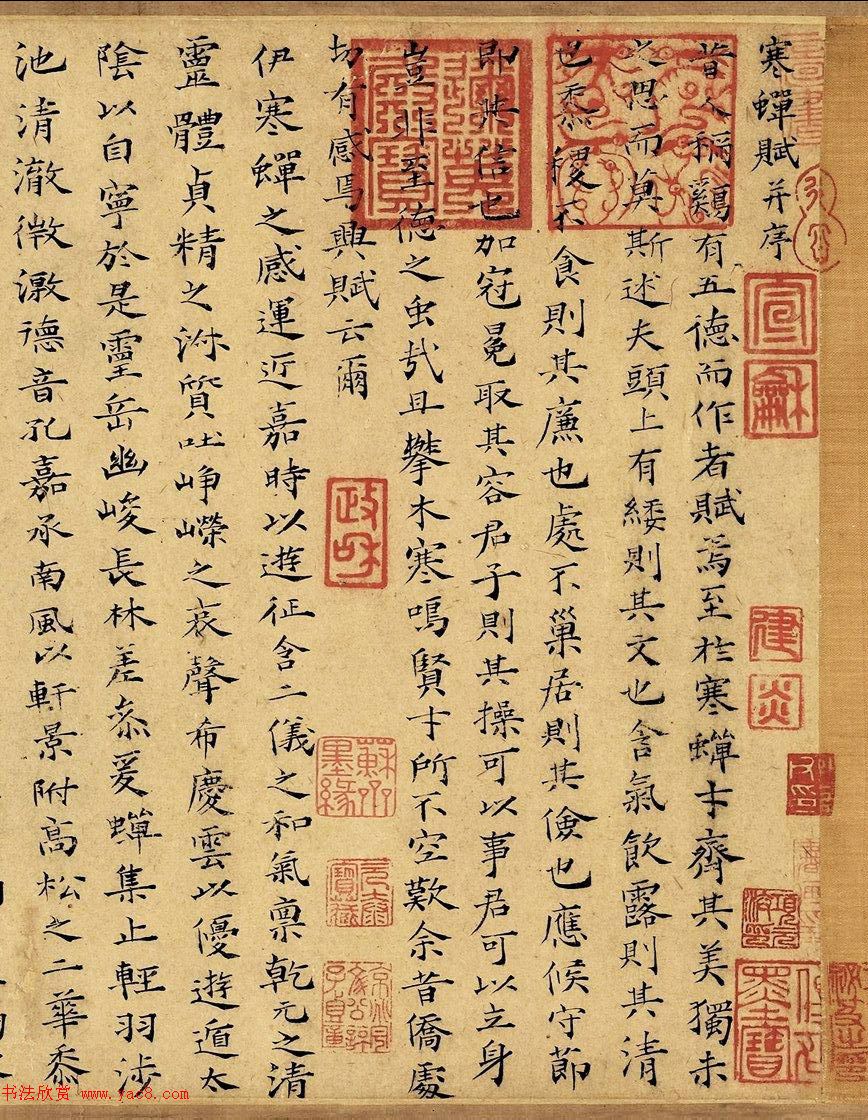 寒蟬賦并序
昔人稱鷄有五德而作者賦焉至於寒蟬才齊其美獨未
之思而莫斯述夫頭上有緌則其文也含氣飲露則其清
也黍稷不食則其廉也處不巢居則其儉也應候守節
即其信也加冠冕取其容君子則其操可以事君可以立身
豈非至德之虫哉且攀木寒鳴賢才所不空歎余昔僑處
切有感焉興賦云爾
伊寒蟬之感運近嘉時以遊征含二儀之和氣稟乾元之清
靈體貞精之淋質吐崢嶸之哀聲希慶雲以優遊遁太
陰以自寧於是靈岳幽峻長林參差爰蟬集止輕羽涉
池清澈微激德音孔嘉承南風以軒景附高松之二華黍
宣龢
建炎
政和
蘇齋墨緣
书法欣赏 www.yac8.com